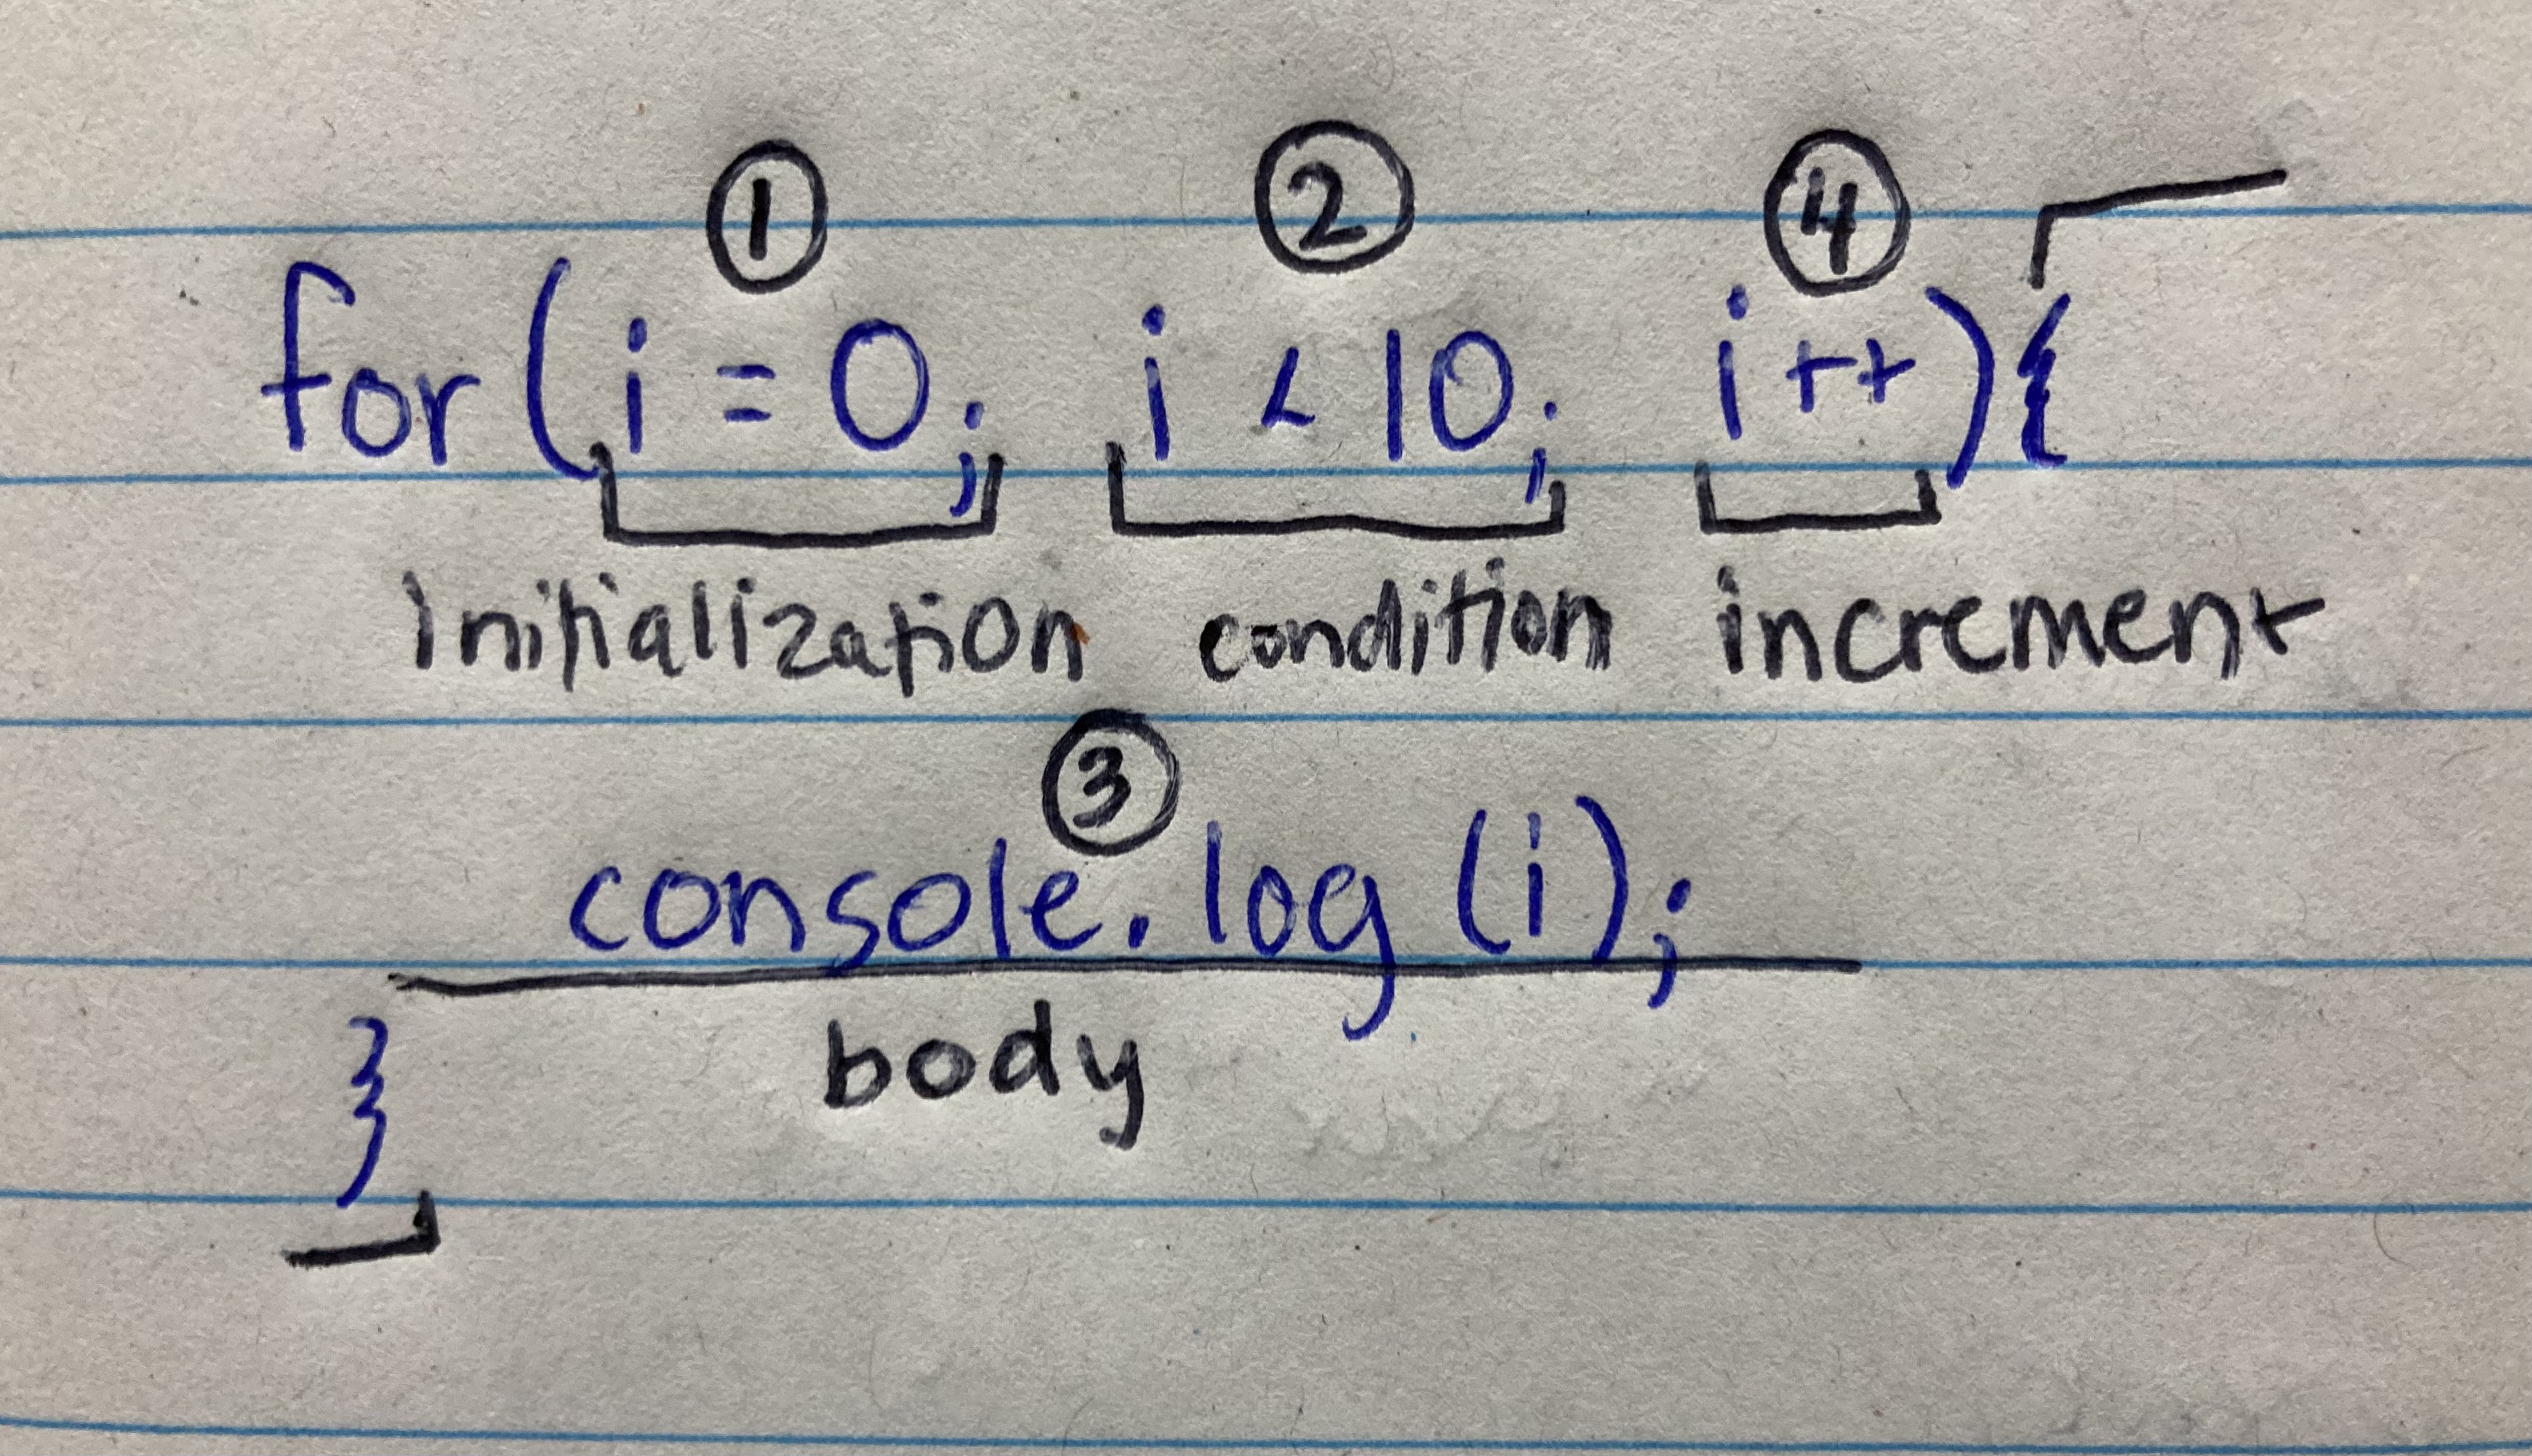 ① ② ④
for (i = 0; i < 10; i++){
initialization condition increment
③
console.log (i);
body
}